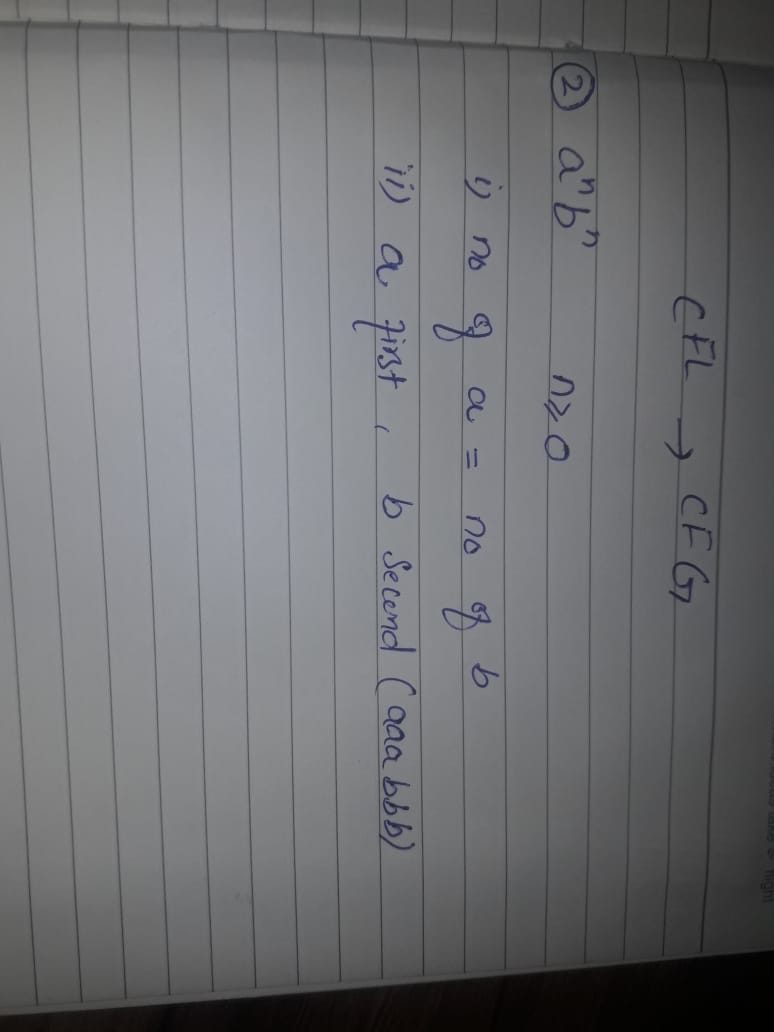 CFL → CFG
② aⁿbⁿ n≥0
i) no of a = no of b
ii) a first, b second (aaabbb)